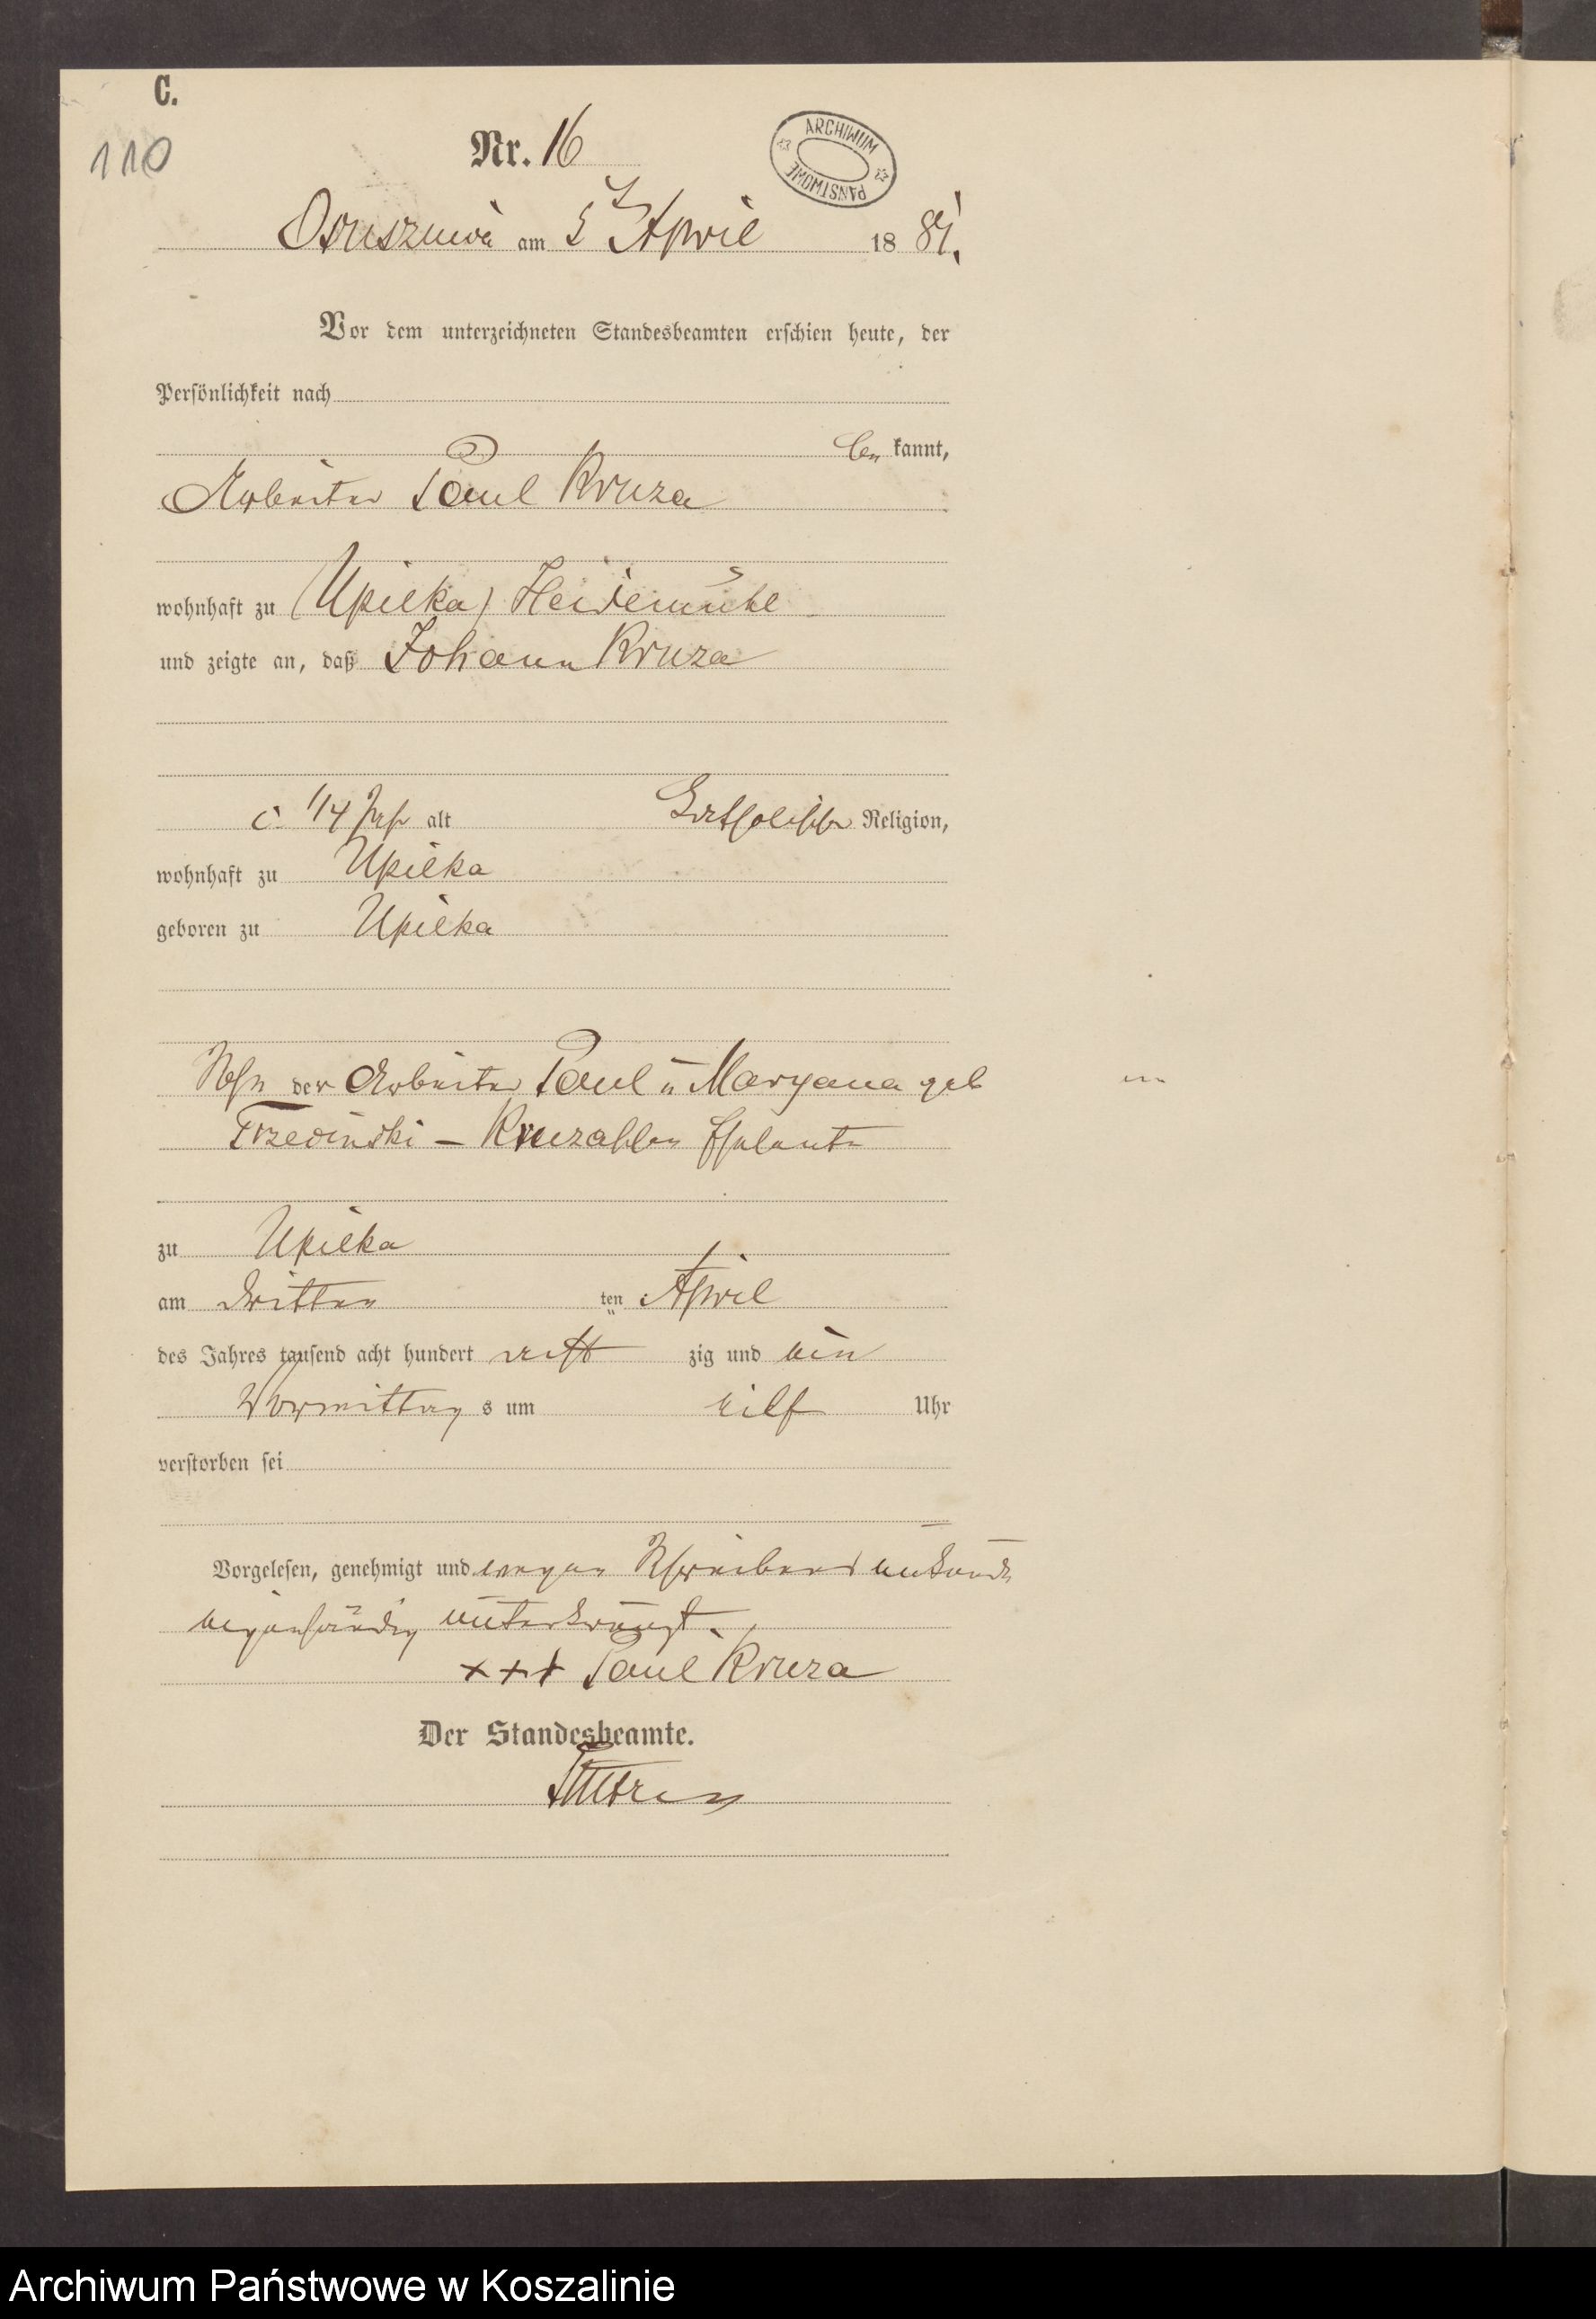 C.
110
Nr. 16
ARCHIWUM PAŃSTWOWE
Ossuszniça am 5 April 1881.
Vor dem unterzeichneten Standesbeamten erschien heute, der
Persönlichkeit nach
be kannt,
Arbeiter Paul Kruza
wohnhaft zu (Upilka) Heidemühl
und zeigte an, daß Johann Kruza
1/4 Jahr alt Katholischer Religion,
wohnhaft zu Upilka
geboren zu Upilka
Sohn der Arbeiter Paul u Maryana geb
Trzecinski – Kruzaschen Eheleute
zu Upilka
am dritten ten April
des Jahres tausend acht hundert acht zig und ein
Vormittag s um eilf Uhr
verstorben sei
Vorgelesen, genehmigt und wegen Schreibens unkunde
eigenhändig unterkreuzt.
+++ Paul Kruza
Der Standesbeamte.
Archiwum Państwowe w Koszalinie